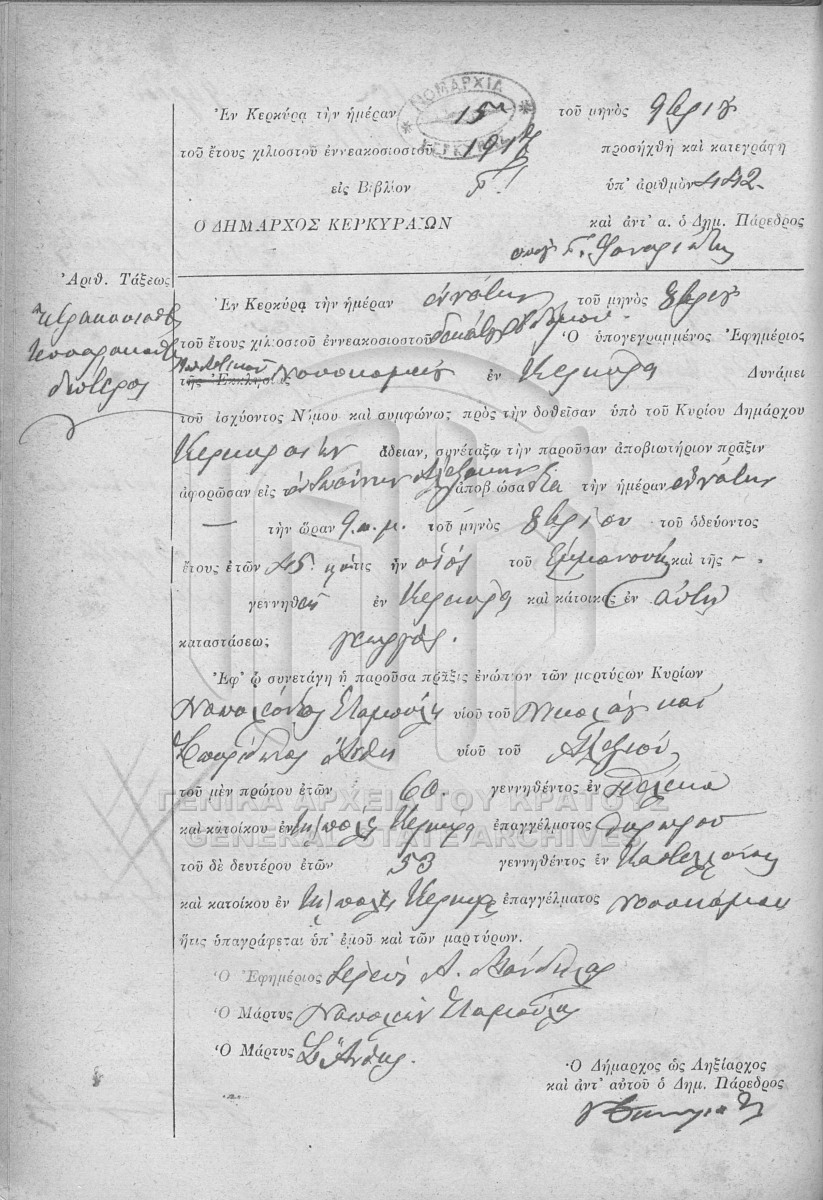 ΝΟΜΑΡΧΙΑ
ΚΕΡΚΥΡΑΣ
Ἐν Κερκύρᾳ τὴν ἡμέραν 15η τοῦ μηνὸς 9βρίου
τοῦ ἔτους χιλιοστοῦ ἐννεακοσιοστοῦ 1917 προσήχθη καὶ κατεγράφη
εἰς Βιβλίον Γ' ὑπ' ἀριθμὸν 442
Ο ΔΗΜΑΡΧΟΣ ΚΕΡΚΥΡΑΙΩΝ καὶ ἀντ' α. ὁ Δημ. Πάρεδρος
Ἀριθ. Τάξεως
τετρακοσιοστὸς
τεσσαρακοστὸς
δεύτερος
Ἐν Κερκύρᾳ τὴν ἡμέραν ἐννάτην τοῦ μηνὸς 8βρίου
τοῦ ἔτους χιλιοστοῦ ἐννεακοσιοστοῦ δεκάτου ἑβδόμου. Ὁ ὑπογεγραμμένος Ἐφημέριος
τῆς Ἐκκλησίας Νοσοκομείου ἐν Κερκύρᾳ Δυνάμει
τοῦ ἰσχύοντος Νόμου καὶ συμφώνως πρὸς τὴν δοθεῖσαν ὑπὸ τοῦ Κυρίου Δημάρχου
Κερκυραίων ἄδειαν, συνέταξα τὴν παροῦσαν ἀποβιωτήριον πρᾶξιν
ἀφορῶσαν εἰς τὸν ἀποβιώσαντα τὴν ἡμέραν ἐννάτην
— τὴν ὥραν 9 π.μ. τοῦ μηνὸς 8βρίου τοῦ ὁδεύοντος
ἔτους ἐτῶν 45 ὅστις ἦν υἱὸς τοῦ Ἐμμανουὴλ καὶ τῆς —
γεννηθεὶς ἐν Κερκύρᾳ καὶ κάτοικος ἐν αὐτῇ
καταστάσεως γεωργός.
Ἐφ' ᾧ συνετάγη ἡ παροῦσα πρᾶξις ἐνώπιον τῶν μαρτύρων Κυρίων
Ναπολέοντος Σταμούλη υἱοῦ τοῦ Νικολάου καὶ
Σπυρίδωνος Ἄνθη υἱοῦ τοῦ Ἀλεξίου
τοῦ μὲν πρώτου ἐτῶν 60. γεννηθέντος ἐν Πέλεκα
καὶ κατοίκου ἐν τῇ πόλει Κερκύρᾳ ἐπαγγέλματος
τοῦ δὲ δευτέρου ἐτῶν 53 γεννηθέντος ἐν
καὶ κατοίκου ἐν τῇ πόλει Κερκύρᾳ ἐπαγγέλματος νοσοκόμου
ἥτις ὑπαγράφεται ὑπ' ἐμοῦ καὶ τῶν μαρτύρων.
Ὁ Ἐφημέριος Ἱερεὺς Α.
Ὁ Μάρτυς Ναπολέων Σταμούλης
Ὁ Μάρτυς Σ. Ἄνθης
Ὁ Δήμαρχος ὡς Ληξίαρχος
καὶ ἀντ' αὐτοῦ ὁ Δημ. Πάρεδρος
ΓΕΝΙΚΑ ΑΡΧΕΙΑ ΤΟΥ ΚΡΑΤΟΥΣ
GENERAL STATE ARCHIVES